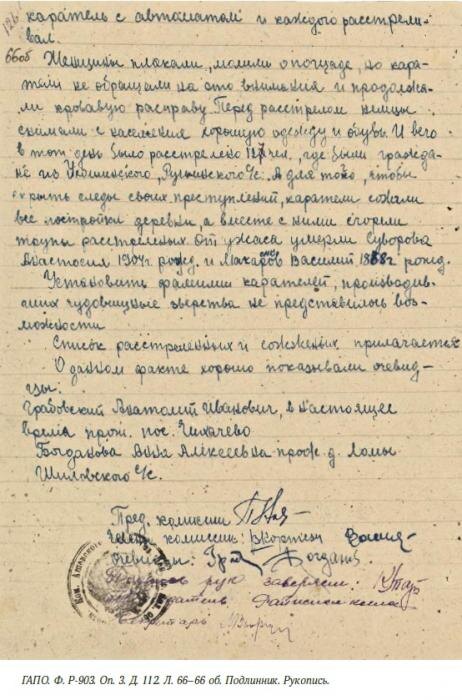 каратель с автоматом и каждого расстрели-
вал.
66об
Женщины плакали, молили о пощаде, но кара-
тели не обращали на это внимания и продолжа-
ли кровавую расправу. Перед расстрелом немцы
снимали с населения хорошую одежду и обувь. И всего
в тот день было расстреляно чел, где были гражда-
не из с/с. А для того, чтобы
скрыть следы своих преступлений, каратели сожгли
все постройки деревни, а вместе с ними сгорели
трупы расстрелянных. От ужаса умерли Суворова
Анастасия 1904г. рожд. и Василий рожд.
Установить фамилии карателей, производив-
ших чудовищные зверства не представилось воз-
можности
Список расстрелянных и сожженных прилагается
О данном факте хорошо показывали очевид-
цы:
Грабовский Анатолий Иванович, в настоящее
время прож. пос. Чихачево
Богданова Анна Алексеевна прож. д. Ломы
Шиловского с/с.
Пред. комиссии
комиссии:
очевидцы: Богданова
рук заверяем:
секретарь
ГАПО. Ф. Р-903. Оп. 3. Д. 112. Л. 66–66 об. Подлинник. Рукопись.